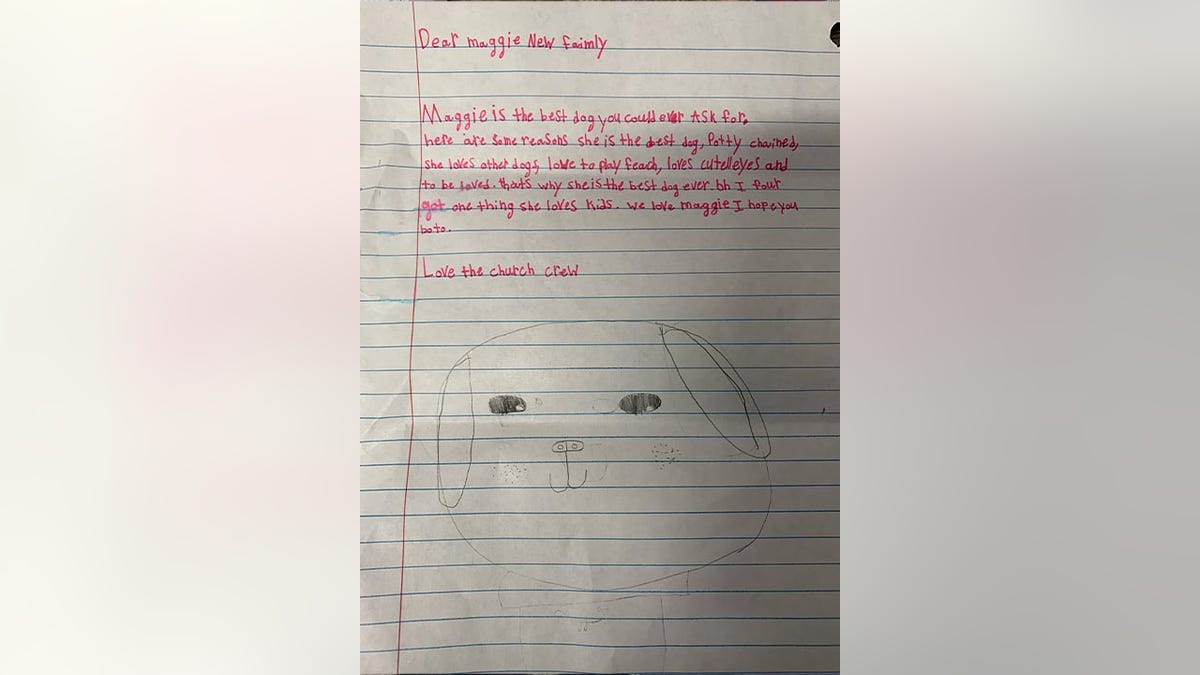 Dear maggie New faimly
Maggie is the best dog you could ever Ask for.
here are some reasons she is the best dog, Potty chained,
she loves other dogs, love to play feach, loves cutelleyes and
to be loved. thats why she is the best dog ever. oh I four
got one thing she loves kids. we love maggie I hope you
boto.
Love the church crew